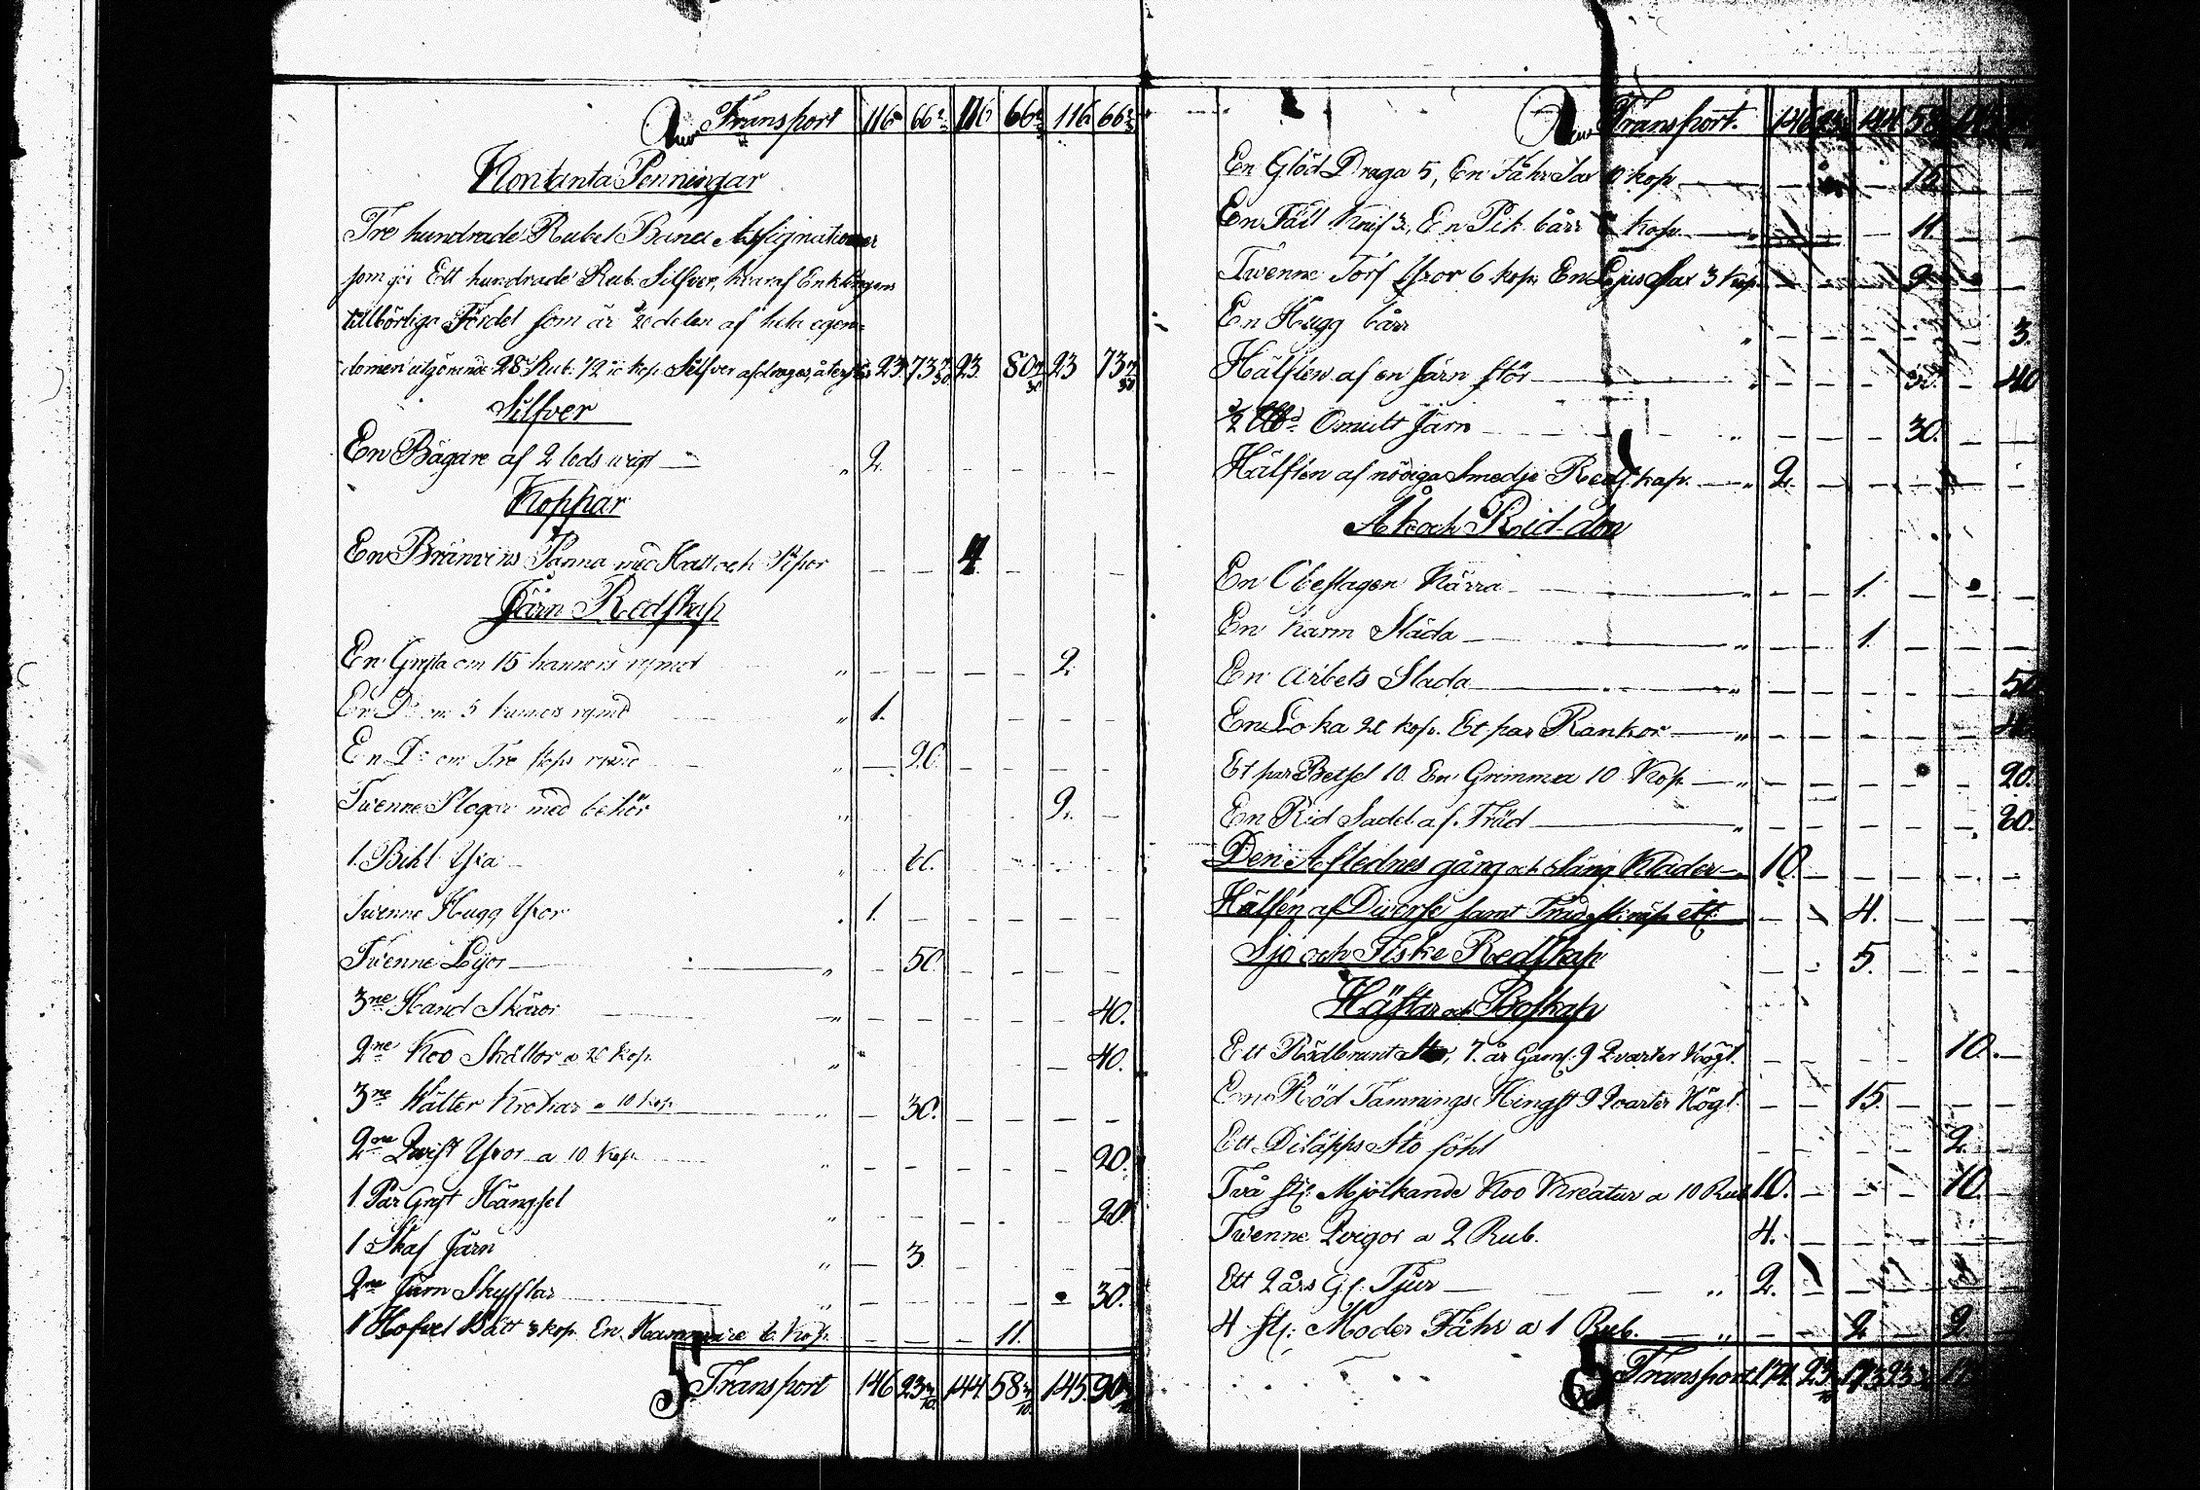 Transport 116 66 116 66 116 66
Kontanta Penningar
Tre hundrade Rubel Banco Assignationer
som gör Ett hundrade Rub. Silfver, hvaraf Enklingens
tillbörliga Fördel som är 20 delen af hela egen-
domen utgörande 28 Rub. kop. Silfver afdrages, 23 73 23 80 23 73
Silfver
En Bägare af 2 lods wigt 2.
Koppar
En Bränvins Panna med Hatt och Pipor 4
Järn Redskap
En Gryta om 15 kannors rymd 2.
En D:o om 5 kannors rymd 1.
En D:o om Tre stops rymd 20.
Twenne Plogar med behör 2.
1. Bihl Yxa
Twenne Hugg Yxor 1.
Twenne Lijor 50.
3ne Hand Skäror 40.
2ne Koo Skällor a 20 kop. 40.
3ne Wälter Krokar a 10 kop. 30.
2ne Qvist Yxor a 10 kop. 20.
1 Par Gryt Hängsel 20.
1 Skaf Järn 3.
2ne Järn Skyfflar 30.
1 Hofvel Bått 3 kop. En kop. 11.
Transport 146 23 144. 58 145. 90
Transport.
En Glöd Draga 5, En Fåhr Sax 10 kop 15
En Fäll Knif 3, En Pik bårr kop. 11.
Twenne Torf Yxor 6 kop. En Ljus Sax 3 kop. 9
En Hugg bårr 3.
Hälften af en Järn stör 40
½ Omält Järn 30.
Hälften af nödiga Smedje Redskap. 2.
Åk och Rid-don
En Obeslagen Kärra 1.
En Karm Släda 1.
En Arbets Slada 50
En Loka 20 kop. Et par Rankor
Et par Betsel 10. En Grimma 10 Kop. 20.
En Rid Sadel af Träd
Den Aflednes gång och säng Kläder 10.
Hälften af Diverse samt Träd 4.
Sjö och Fiske Redskap 5.
Hästar och Boskap
Ett Rödbrunt Sto, 7. år Gam. 9 Qvarter Högt. 10.
En Röd Tämnings Hingst 9 Qvarter Högt. 15.
Ett Diläpps Sto föhl 2.
Två st. Mjölkande Koo Kreatur a 10 Rub. 10. 10.
Twenne Qvigor a 2 Rub. 4.
Ett 2 års Gl. Tjur 2.
4 st. Moder Fåhr a 1 Rub. 2. 2.
Transport 174. 23 173. 23